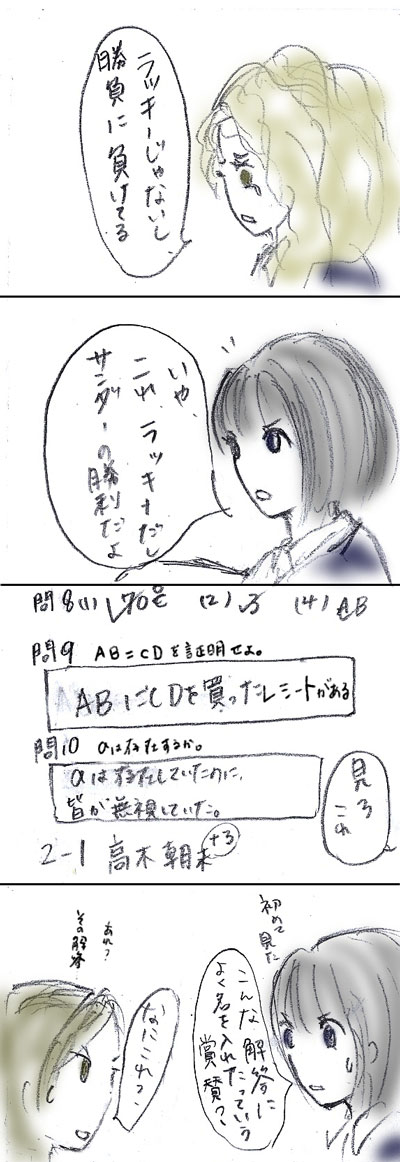 ラッキーじゃないし
勝負に負けてる
いや、
これ ラッキーだし
サンダーの勝利だよ
問8(1) 70℃ (2) √3 (4) AB
問9 AB=CDを証明せよ。
ABにCDを買ったレシートがある
問10 aは存在するか。
aは存在していたのに、
皆が無視していた。
2-1 高木朝未
+3
見ろ
これ
初めて見た
こんな解答に
よく名を入れたっていう
賞賛?
なにこれ?
あれ?
その解答